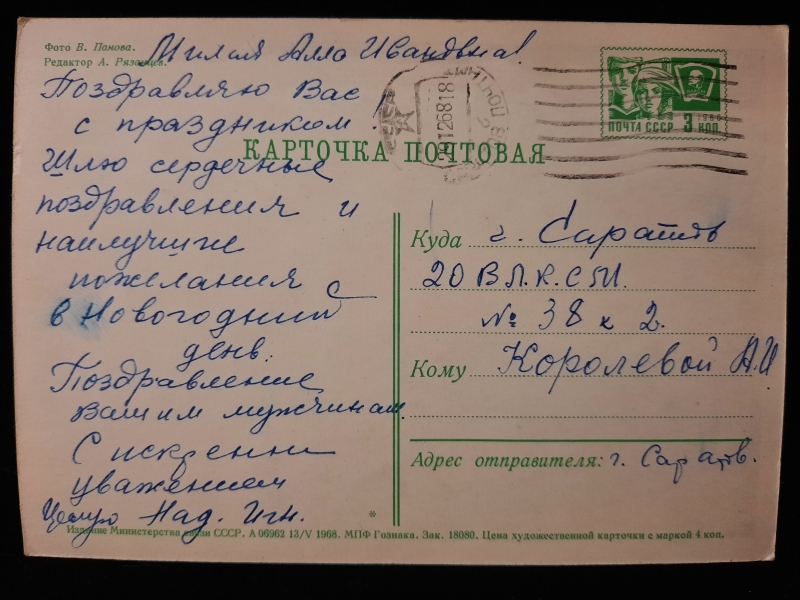 Фото В. Панова.
Редактор А. Рязанцев.
Милая Алла Ивановна!
Поздравляю Вас
с праздником!
Шлю сердечные
поздравления и
наилучшие
пожелания
в Новогодний
день.
Поздравление
Вашим мужчинам.
С искренни
уважением
Целую Над. Игн.
КАРТОЧКА ПОЧТОВАЯ
СССР
ПОЧТА СССР 3 КОП.
1966
Куда г. Саратов
20 В.Л.К.С.М.
№ 38 к 2.
Кому Королевой А.И
Адрес отправителя: г. Саратов.
*
Издание Министерства связи СССР. А 06962 13/V 1968. МПФ Гознака. Зак. 18080. Цена художественной карточки с маркой 4 коп.